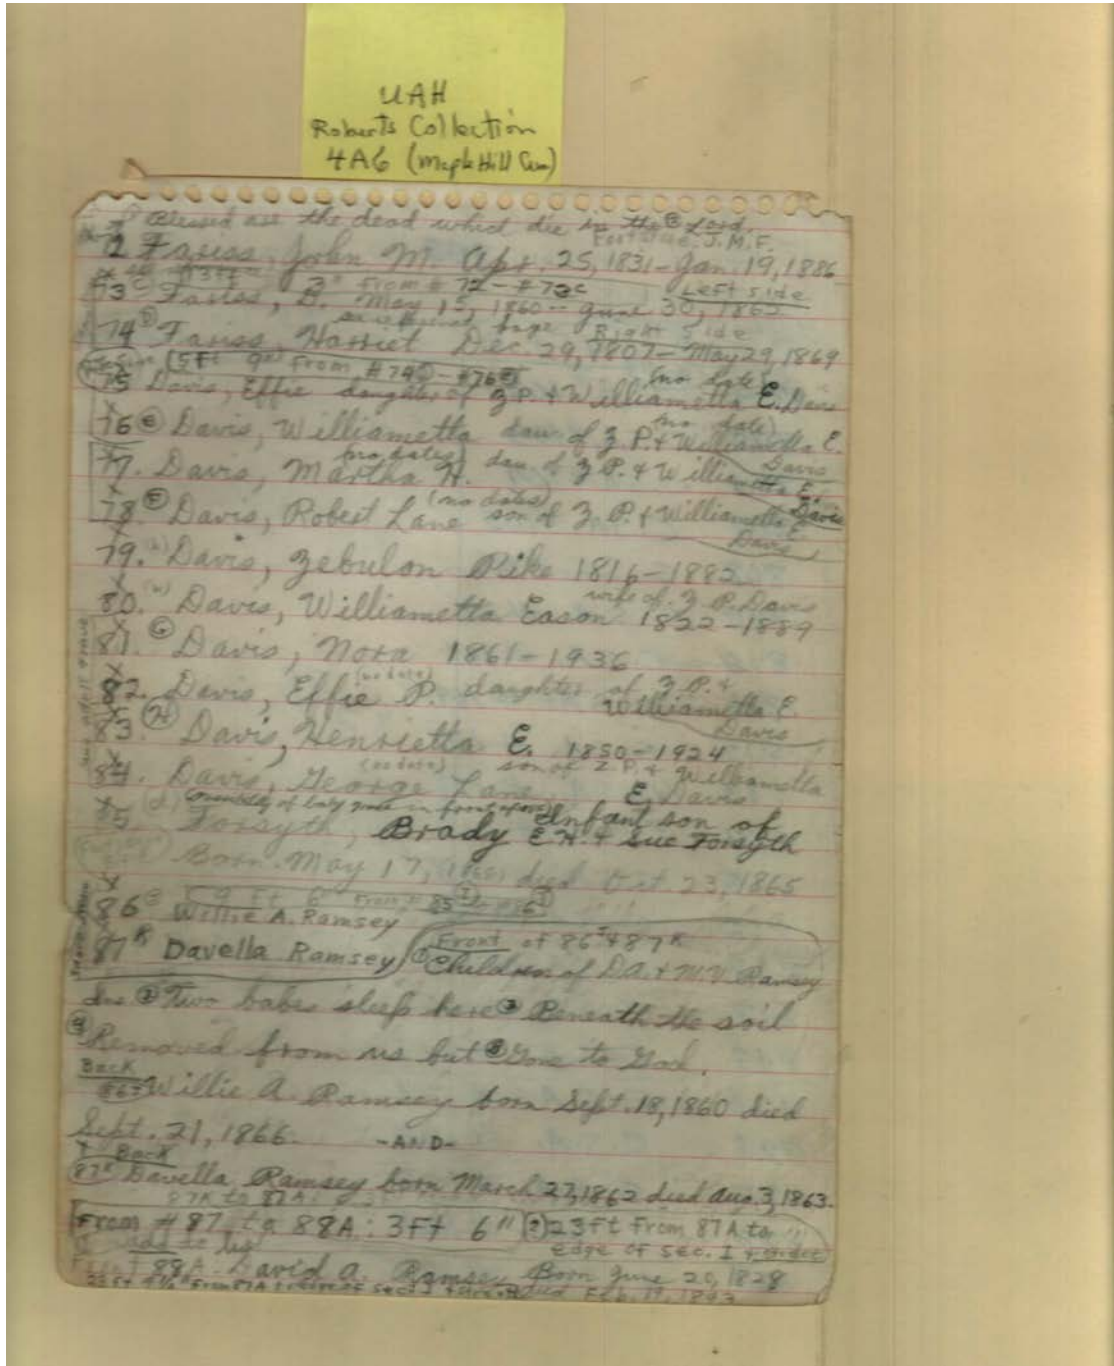 UAH
Roberts Collection
4A6 (Maple Hill Cem)
Blessed are the dead which die in the Lord.
Footstone: J.M.F.
72 Fariss, John M. Apr. 25, 1831 - Jan. 19, 1886
3" From # 72 - # 73c Left side
73 c Fariss, B. May 15, 1860 - June 30, 1862
page Right side
74 D Fariss, Harriet Dec. 29, 1807 - May 29, 1869
5Ft 9" From #74 - #76
(no date)
75 Davis, Effie daughter of Z P. & Williametta E. Davis
(no date)
76 e Davis, Williametta dau. of Z P. & Williametta E.
Davis
77. Davis, Martha H. (no dates) dau of Z P. & Williametta E.
Davis
78 F Davis, Robert Lane (no dates) son of Z. P. & Williametta E
Davis
79. Davis, Zebulon Pike 1816-1882
wife of Z P. Davis
80. (w) Davis, Williametta Eason 1822-1889
81. G Davis, Nora 1861-1936
(no date)
82. Davis, Effie P. daughter of Z P. &
Williametta E
Davis
83. H Davis, Henrietta E. 1850-1924
(no date) son of Z P. & Williametta
84. Davis, George Lane E. Davis
85 (d) Forsyth, Brady Infant son of
E H. & Sue Forsyth
Born May 17, died Oct 23, 1865
9 Ft 6" From # 85 I to #86 J
86 Willie A. Ramsey
87 K Davella Ramsey Front of 86 J & 87 K
① Children of D.A. & M.V. Ramsey
Ins. ② Two babes sleep here ③ Beneath the soil
④ Removed from us but ⑤ Gone to God.
Back
86 Willie A. Ramsey born Sept. 18, 1860 died
Sept. 21, 1866. -AND-
Back
87 K Davella Ramsey born March 27, 1862 died Aug. 3, 1863.
87K to 87A:
From # 87 to 88A: 3Ft 6" 23Ft From 87A to
edge of Sec. I
Front 88A David A. Ramsey Born June 20, 1828
From 87A died Feb. 19,